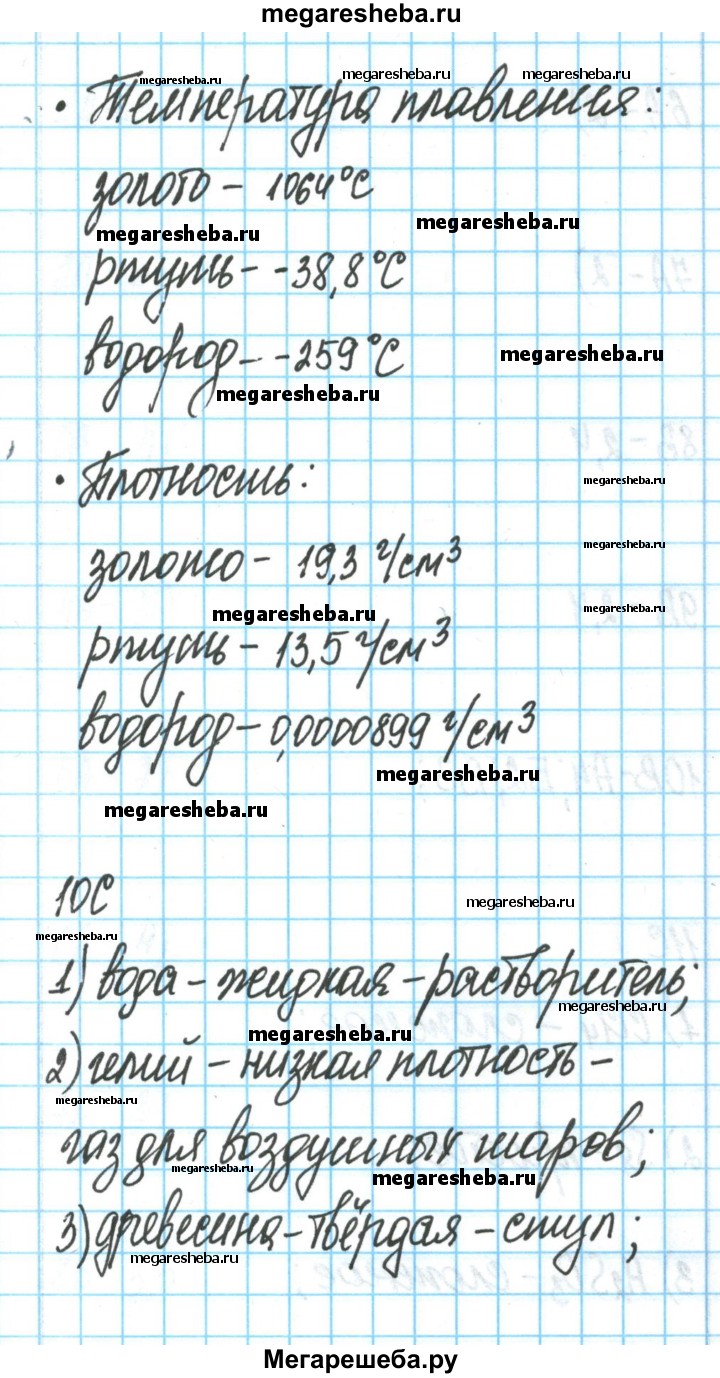 megaresheba.ru
megaresheba.ru megaresheba.ru megaresheba.ru
• Температура плавления:
золото - 1064°C
megaresheba.ru megaresheba.ru
ртуть - -38,8°C
водород - -259°C
megaresheba.ru
megaresheba.ru
• Плотность:
megaresheba.ru
золото - 19,3 г/см³
megaresheba.ru
megaresheba.ru megaresheba.ru
ртуть - 13,5 г/см³
водород - 0,0000899 г/см³
megaresheba.ru
megaresheba.ru
10С
megaresheba.ru
megaresheba.ru
1) вода - жидкая - растворитель;
megaresheba.ru
megaresheba.ru
2) гелий - низкая плотность -
megaresheba.ru
газ для воздушных шаров;
megaresheba.ru
megaresheba.ru
3) древесина - твёрдая - стул;
megaresheba.ru
Мегарешеба.ру